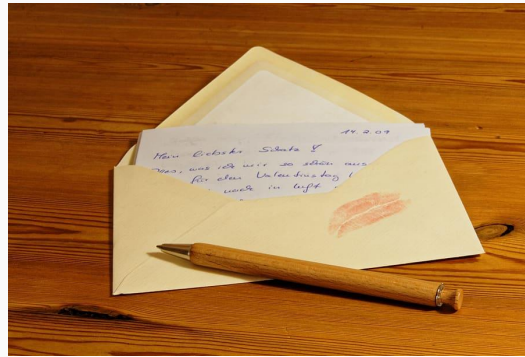 14.2.09
Mein liebster Schatz
was ich mir so schön aus
für den Valentinstag
in Luft